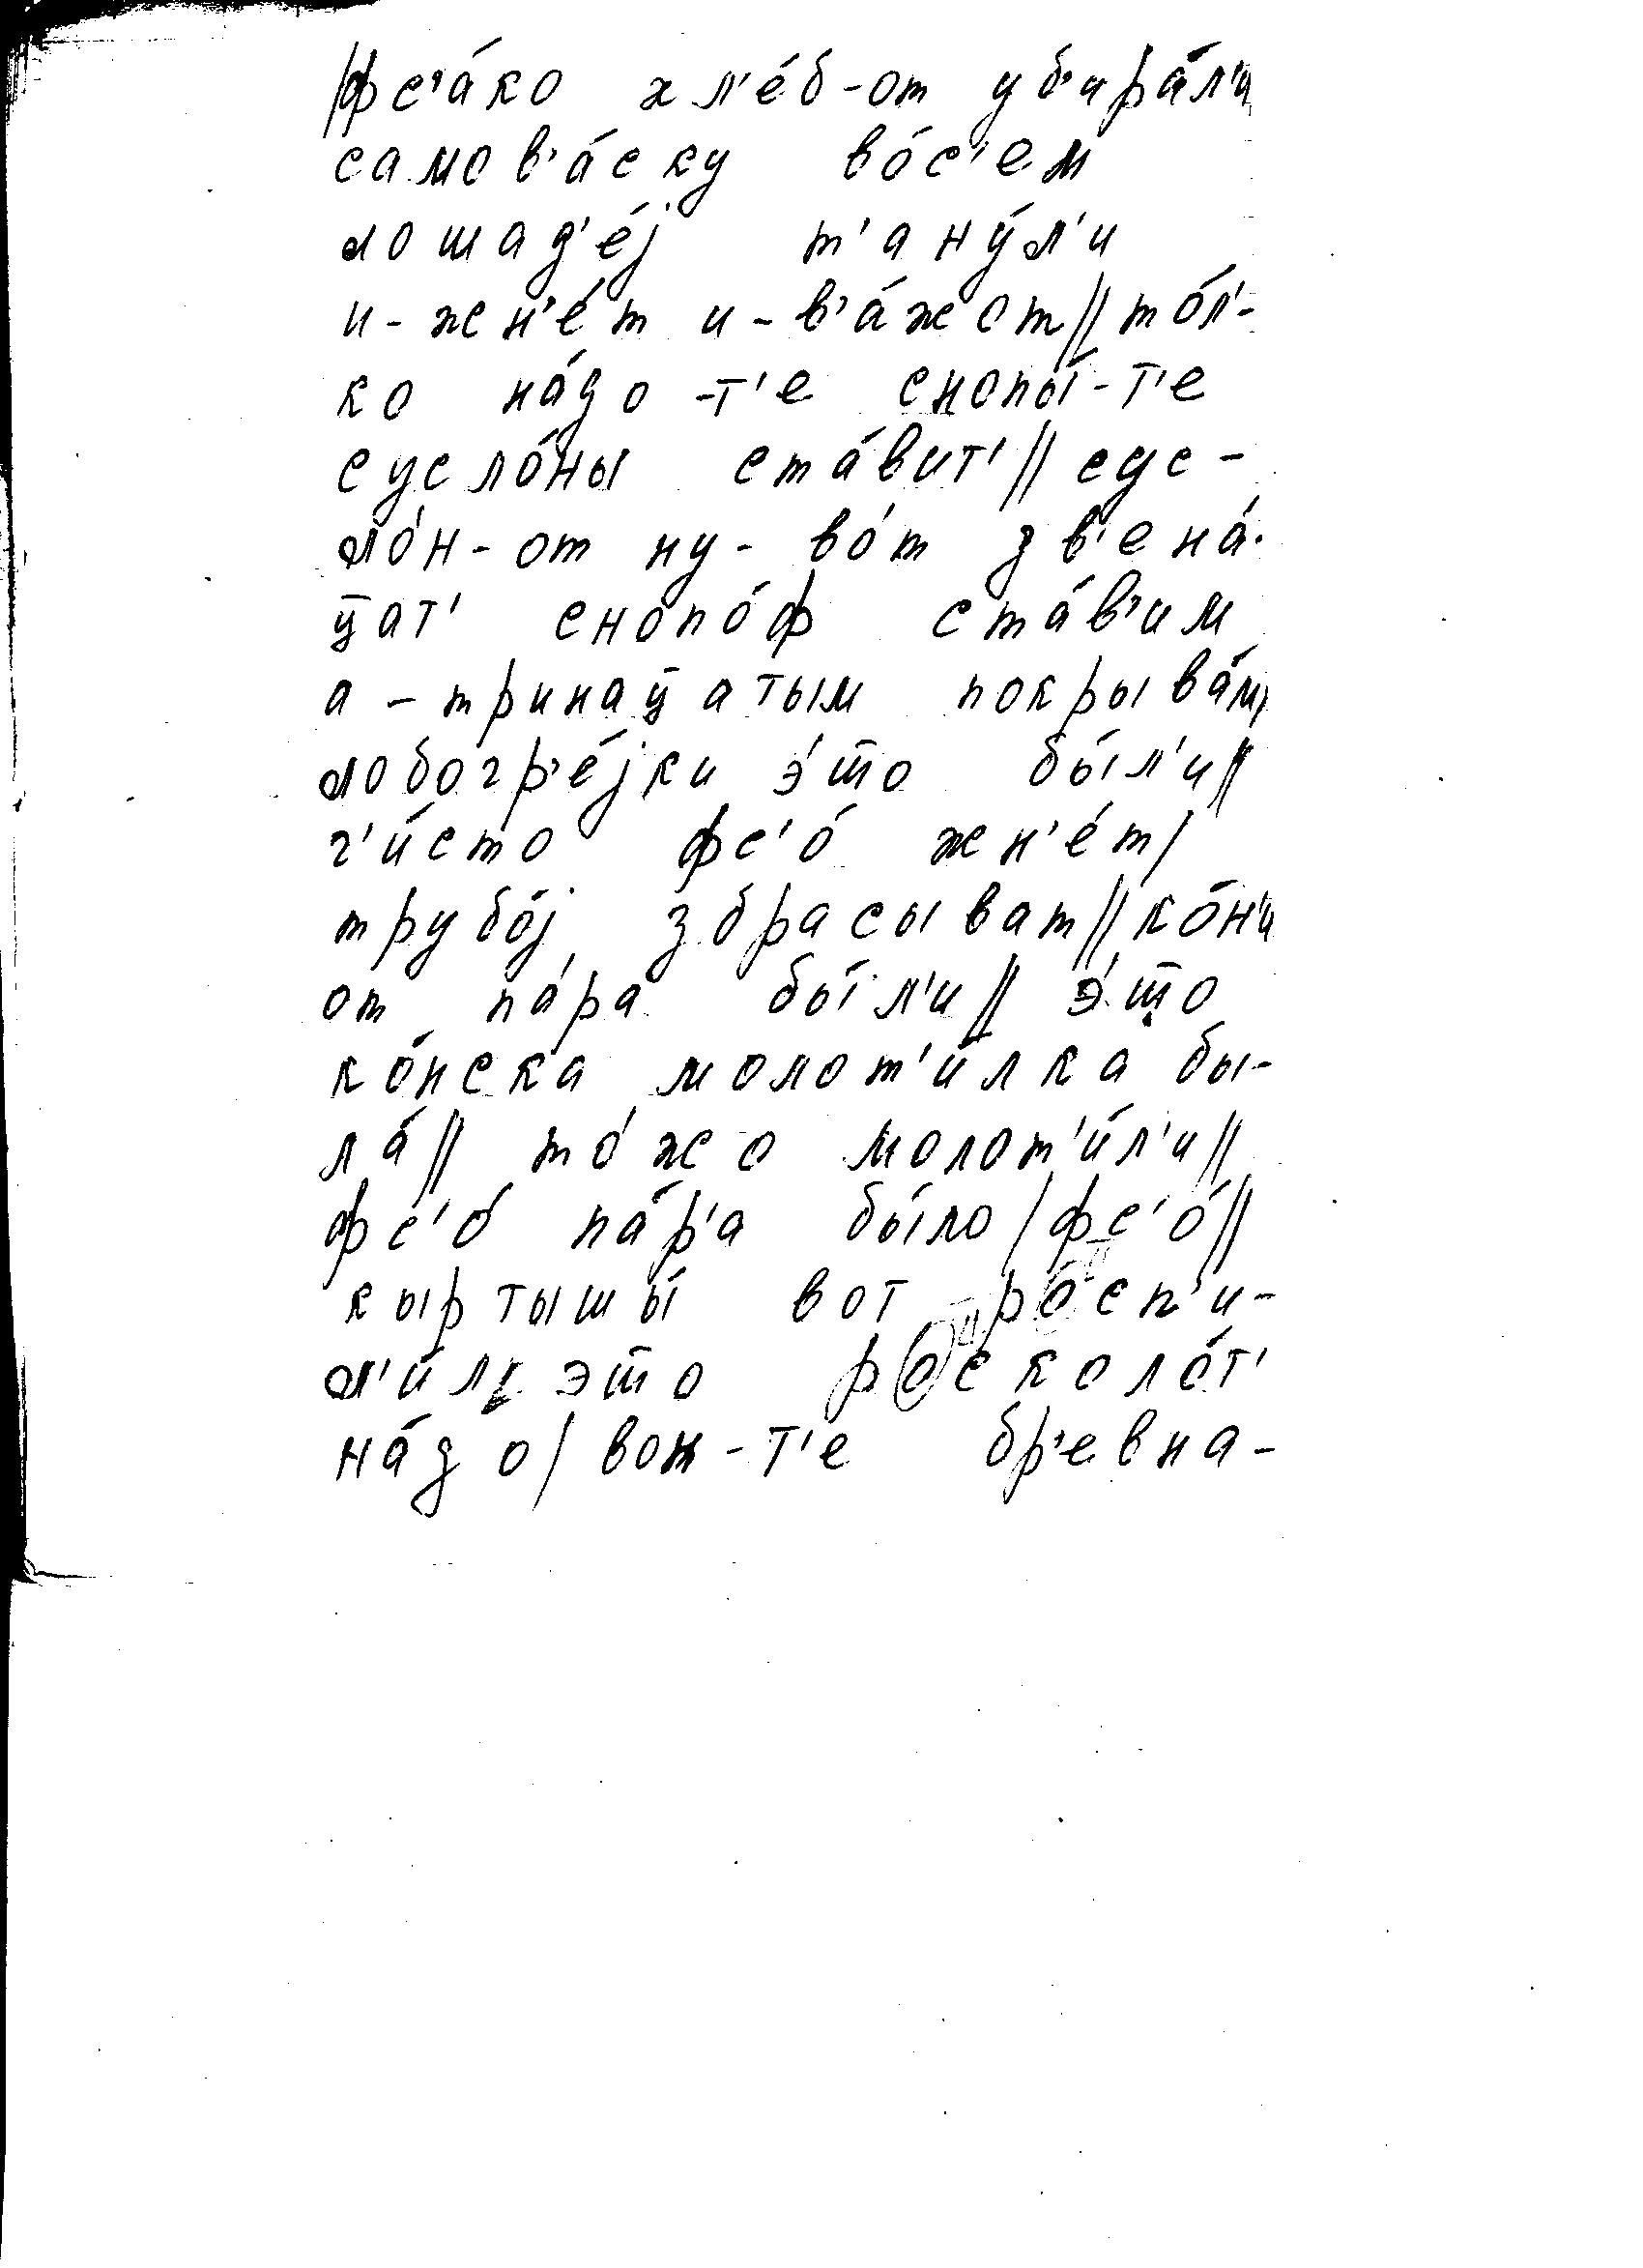 /фс'а́ко хл'е́б-от уб'ира́л'и
самов'а́ску во́с'ем
лошад'е́j т'ану́л'и
и-жн'е́т и-в'а́жот// то́л'-
ко на́до -т'е снопы́-т'е
сусло́ны ста́вит'// сус-
ло́н-от ну-во́т дв'ена́-
ц̄ат' снопо́ф ста́в'им
а-тринац̄атым покрыва́м/
лобогр'е́jки э́т̄о бы́л'и//
ч'и́сто фс'о́ жн'е́т/
трубо́j збрасыват// ко́н'и
от па́ра бы́л'и// э́т̄о
ко́нска молот'и́лка бы-
ла́// то́жо молот'и́л'и//
фс'о́ па́р'а бы́ло/ фс'о́//
кыртышы́ вот росп'и-
л'и́л эт̄о росколо́т'
на́до/ вон-т'е бр'евна-